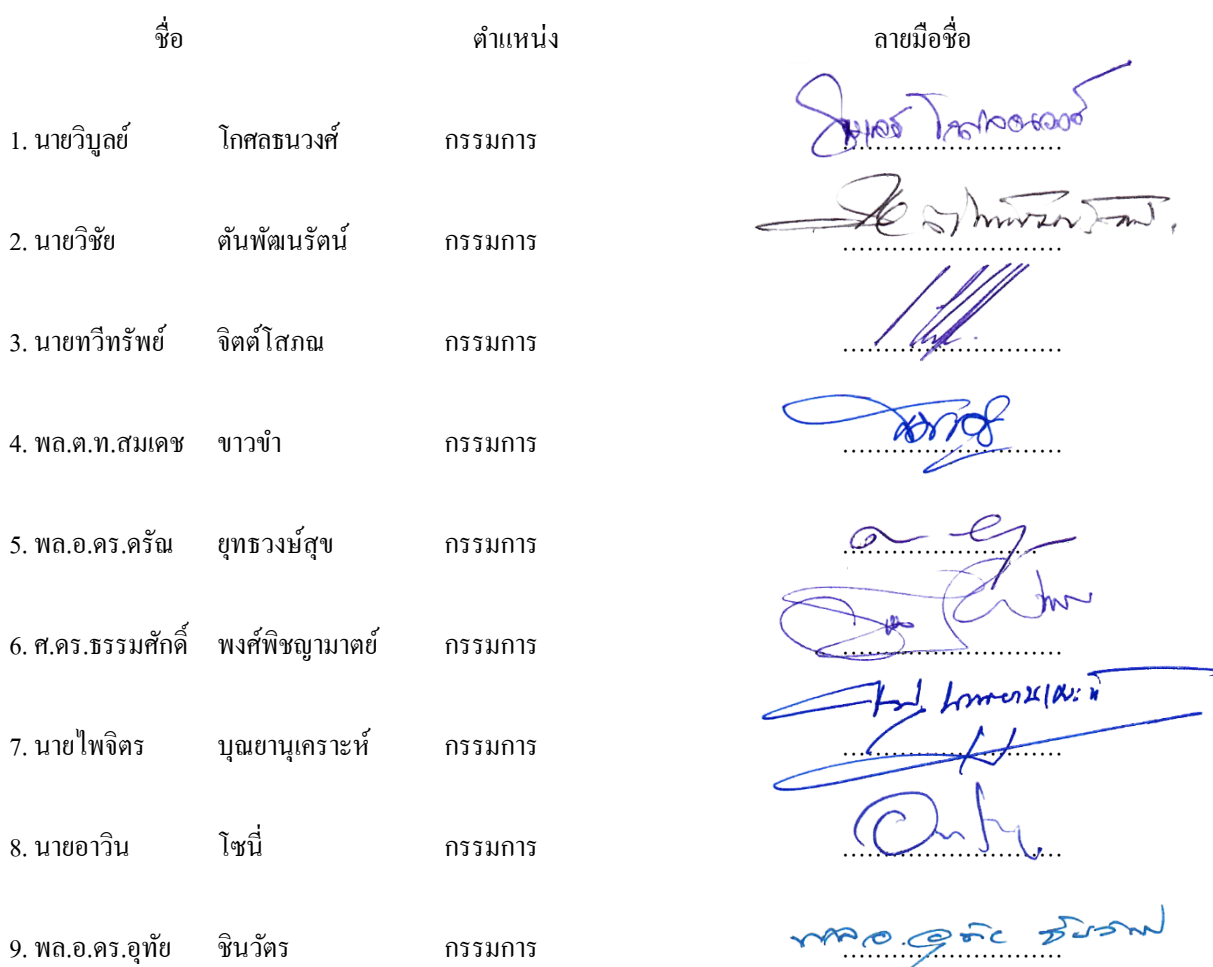 ชื่อ ตำแหน่ง ลายมือชื่อ
1. นายวิบูลย์ โกศลธนวงศ์ กรรมการ ............................
2. นายวิชัย ตันพัฒนรัตน์ กรรมการ ............................
3. นายทวีทรัพย์ จิตต์โสภณ กรรมการ ............................
4. พล.ต.ท.สมเดช ขาวขำ กรรมการ ............................
5. พล.อ.ดร.ดรัณ ยุทธวงษ์สุข กรรมการ ............................
6. ศ.ดร.ธรรมศักดิ์ พงศ์พิชญามาตย์ กรรมการ ............................
7. นายไพจิตร บุณยานุเคราะห์ กรรมการ ............................
8. นายอาวิน โซนี่ กรรมการ ............................
9. พล.อ.ดร.อุทัย ชินวัตร กรรมการ พล.อ. อุทัย ชินวัตร